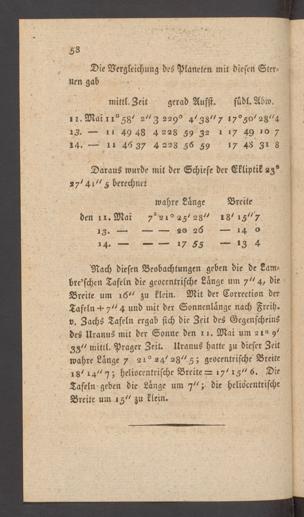 58
Die Vergleichung des Planeten mit diesen Ster-
nen gab
mittl. Zeit gerad Aufst. südl. Abw.
11. Mai 11° 58' 2'' 3 229° 4' 38'' 7 17° 50' 28'' 4
13. — 11 49 48 4 228 59 32 1 17 49 10 7
14. — 11 46 37 4 228 56 59 17 48 31 8
Daraus wurde mit der Schiefe der Ekliptik 23°
27' 41'' 5 berechnet
wahre Länge Breite
den 11. Mai 7ˢ 21° 25' 28'' 18' 15'' 7
13. — — — 20 26 — 14 0
14. — — — 17 55 — 13 4
Nach diesen Beobachtungen geben die de Lam-
bre'schen Tafeln die geocentrische Länge um 7'' 4, die
Breite um 16'' zu klein. Mit der Correction der
Tafeln + 7'' 4 und mit der Sonnenlänge nach Freih.
v. Zachs Tafeln ergab sich die Zeit des Gegenscheins
des Uranus mit der Sonne den 11. Mai um 21° 9'
33'' mittl. Prager Zeit. Uranus hatte zu dieser Zeit
wahre Länge 7 21° 24' 28'' 5; geocentrische Breite
18' 14'' 7; heliocentrische Breite = 17' 15'' 6. Die
Tafeln geben die Länge um 7''; die heliocentrische
Breite um 15'' zu klein.